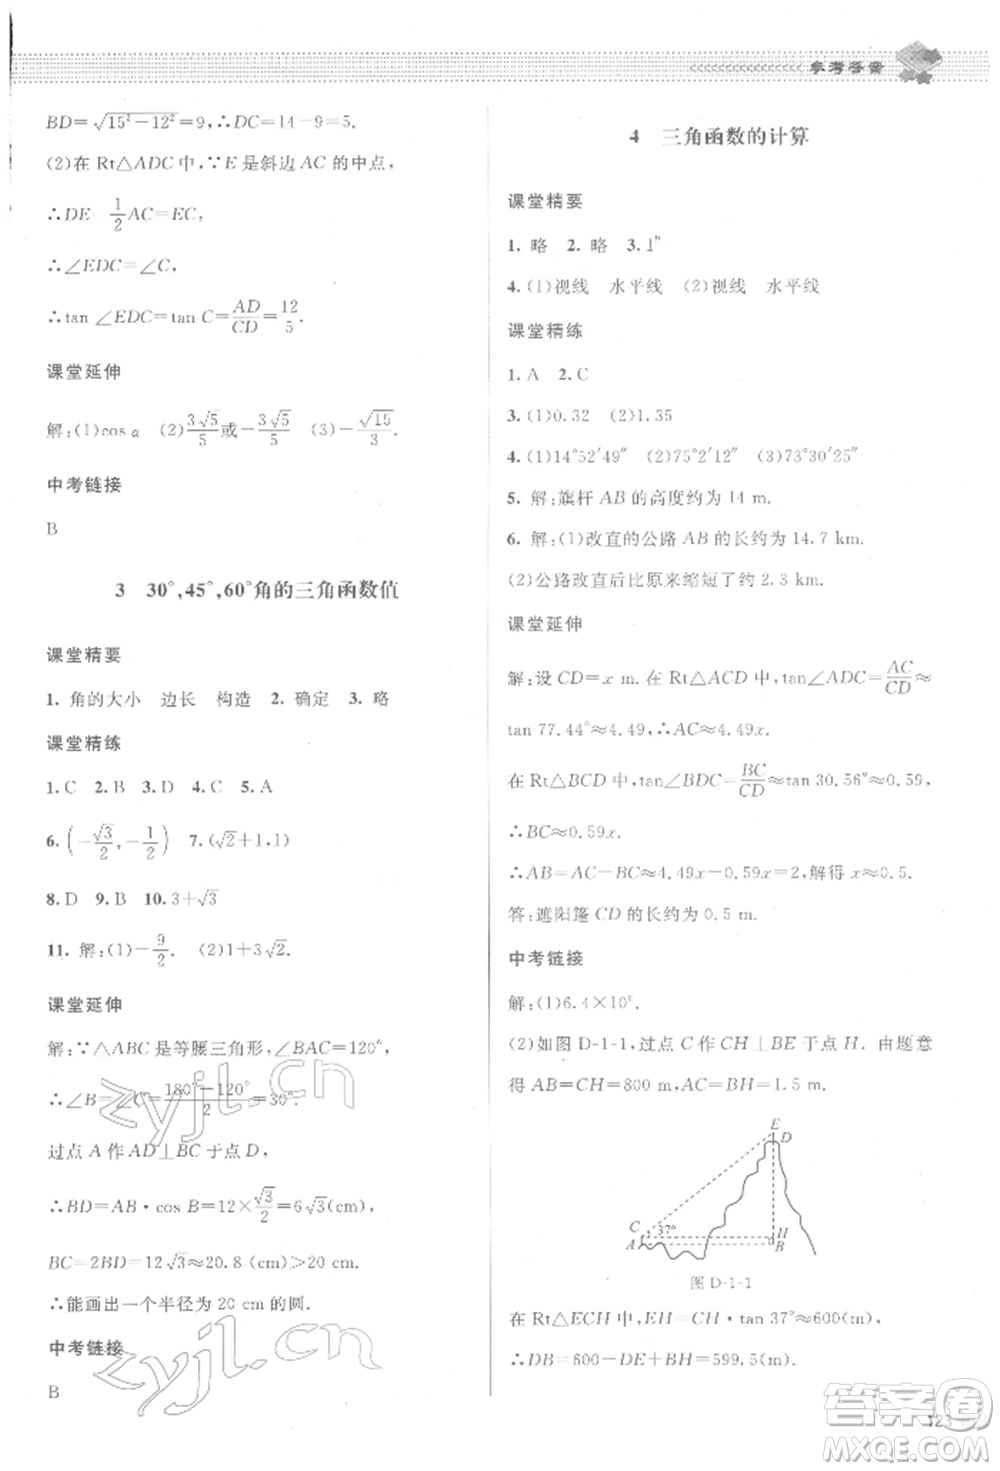 参考答案
BD=√(15²−12²)=9,∴DC=14−9=5.
(2)在 Rt△ADC 中,∵E 是斜边 AC 的中点,
∴DE=1/2 AC=EC,
∴∠EDC=∠C,
∴tan ∠EDC=tan C=AD/CD=12/5.
课堂延伸
解:(1)cos α (2)3√5/5或−3√5/5 (3)−√15/3.
中考链接
B
3 30°,45°,60°角的三角函数值
课堂精要
1. 角的大小 边长 构造 2. 确定 3. 略
课堂精练
1. C 2. B 3. D 4. C 5. A
6. (−√3/2,−1/2) 7. (√2+1,1)
8. D 9. B 10. 3+√3
11. 解:(1)−9/2. (2)1+3√2.
课堂延伸
解:∵△ABC 是等腰三角形,∠BAC=120°,
∴∠B=∠C=(180°−120°)/2=30°.
过点 A 作 AD⊥BC 于点 D,
∴BD=AB·cos B=12×√3/2=6√3(cm),
BC=2BD=12√3≈20.8(cm)>20 cm.
∴能画出一个半径为 20 cm 的圆.
中考链接
B
4 三角函数的计算
课堂精要
1. 略 2. 略 3. 1″
4. (1)视线 水平线 (2)视线 水平线
课堂精练
1. A 2. C
3. (1)0.32 (2)1.35
4. (1)14°52′49″ (2)75°2′12″ (3)73°30′25″
5. 解:旗杆 AB 的高度约为 14 m.
6. 解:(1)改直的公路 AB 的长约为 14.7 km.
(2)公路改直后比原来缩短了约 2.3 km.
课堂延伸
解:设 CD=x m. 在 Rt△ACD 中,tan∠ADC=AC/CD≈
tan 77.44°≈4.49,∴AC≈4.49x.
在 Rt△BCD 中,tan∠BDC=BC/CD≈tan 30.56°≈0.59,
∴BC≈0.59x.
∴AB=AC−BC≈4.49x−0.59x=2. 解得 x≈0.5.
答:遮阳篷 CD 的长约为 0.5 m.
中考链接
解:(1)6.4×10⁶.
(2)如图 D-1-1,过点 C 作 CH⊥BE 于点 H. 由题意
得 AB=CH=800 m,AC=BH=1.5 m.
E
D
C
37°
H
A
B
图 D-1-1
在 Rt△ECH 中,EH=CH·tan 37°≈600(m),
∴DB=600−DE+BH=599.5(m).
123
zyjl.cn
zyjl.cn
答案圈
MXQE.COM